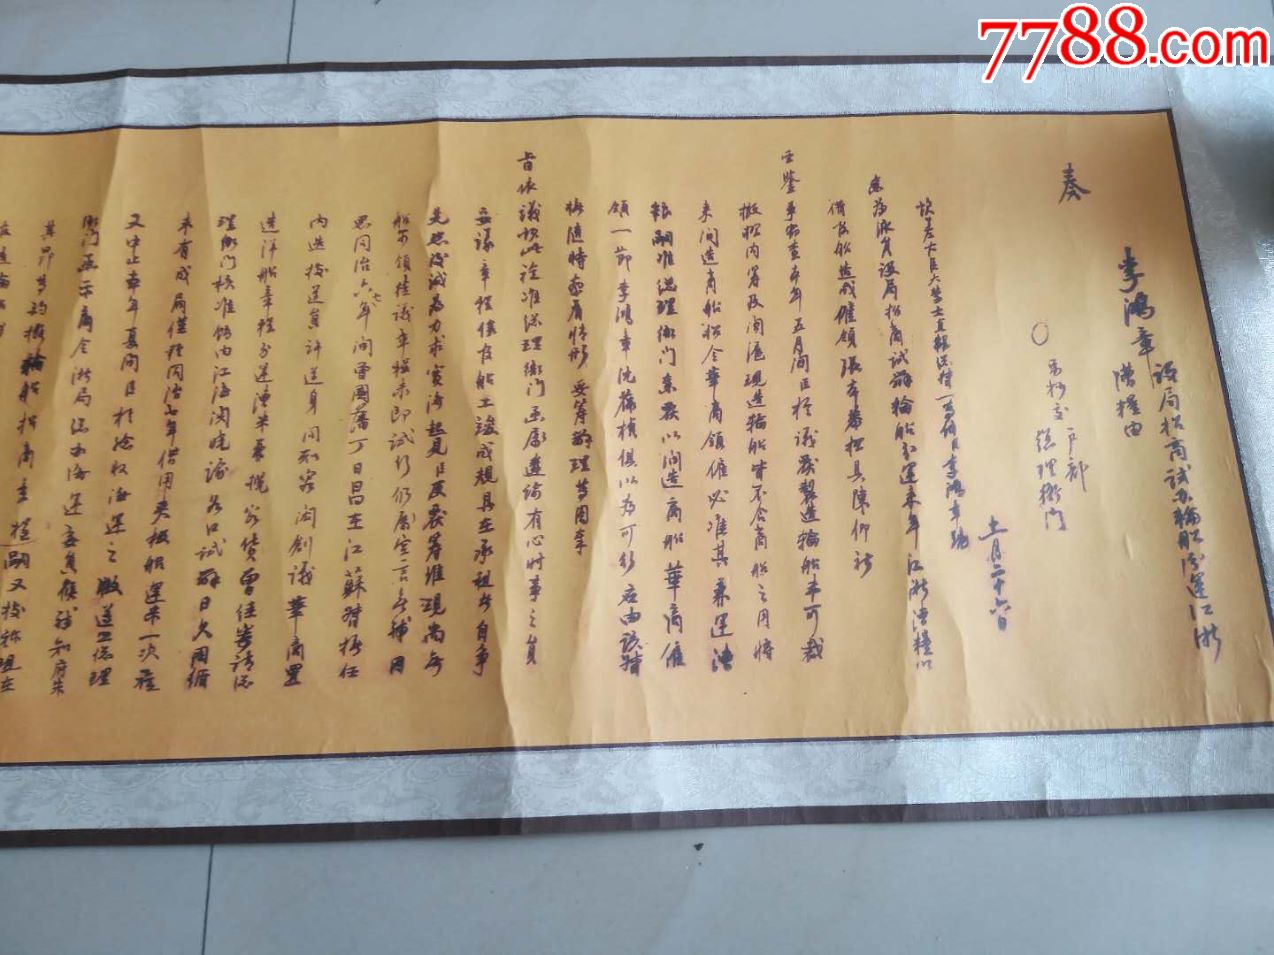 7788.com
奏
李鴻章
設局招商試办輪船分運江浙
漕糧由
另抄交戶部
總理衙門
十一月二十六日
大學士直隸總督一等伯臣李鴻章跪
奏為派員設局招商試辦輪船分運來年江浙漕糧以
備官船造成雇領張本恭摺具陳仰祈
聖鑒事窃查本年五月間臣於議覆製造輪船未可裁
撤摺內籌及閩滬現造輪船皆不合商船之用將
來間造商船招令華商領雇必准其兼運漕
糧嗣准總理衙門奏覆以間造商船華商雇
領一節李鴻章沈葆楨俱以為可行应由該督
撫隨時察看情形妥籌辦理等因奉
旨依議欽此詮准總理衙門函屬遴諭有心時事之員
妥議章程俟官船工竣成規具在承租者自爭
先恐後誠為力求實濟起見臣反覆籌維現尚無
船可領徒議章程未即試行仍屬空言無補因
思同治六七年間曾國藩丁日昌在江蘇督撫任
內迭據道員許道身同知容閎創議華商置
造洋船章程分運漕米兼攬客貨曾經寄請總
理衙門核准飭由江海関曉諭各口試辦日久因循
未有成局僅於同治七年借用夹板船運米一次旋
又中止本年夏間臣於驗收海運之暇遵照總理
衙門函示商令浙局總办海運委員候補知府朱
其昂等酌擬輪船招商章程嗣又據稱現在